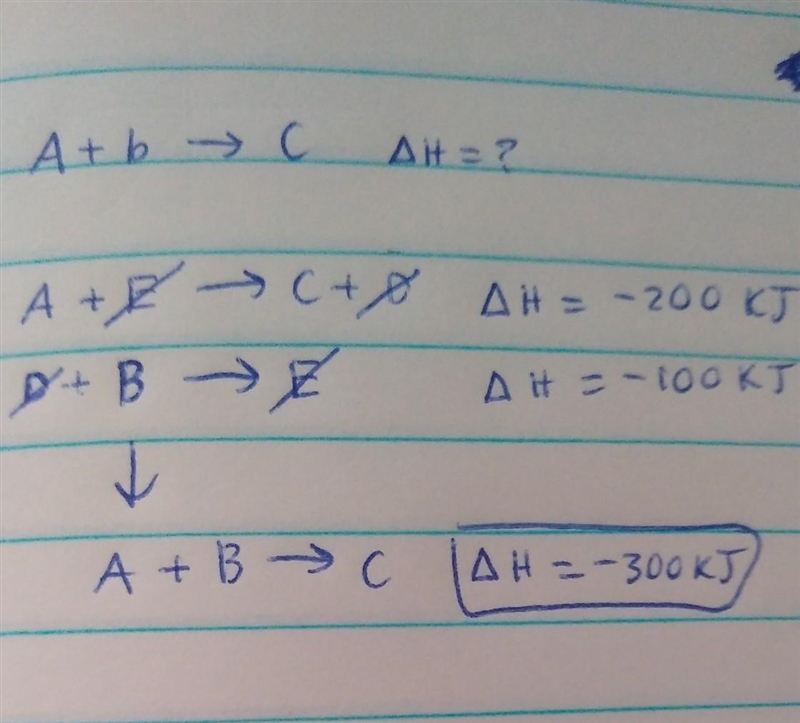 A + b → C ΔH = ?
A + E → C + D ΔH = -200 KJ
D + B → E ΔH = -100 KJ
↓
A + B → C ΔH = -300 KJ